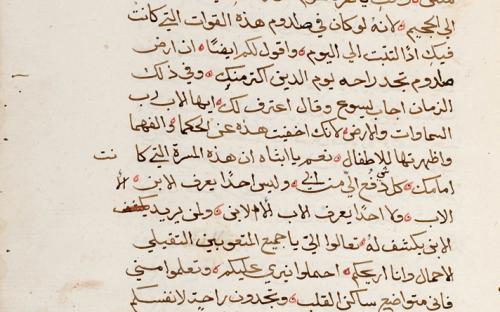 الى الجحيم لانه لو كان فى صادوم هذه القوات التي كانت
فيك اذًا لثبتت الى اليوم واقول لكم ايضًا ان ارض
صادوم تجد راحه يوم الدين اكثر منكِ وفي ذلك
الزمان اجاب ايسوع وقال اعترف لك ايها الاب رب
السماوات والارض لانك اخفيت هذه عن الحكما والفهما
واظهرتها للاطفال نعم يا ابتاه ان هذه المسرة التي كانت
امامك كل شي دُفع الي من ابي وليس احدًا يعرف الابن الا
الاب ولا احدًا يعرف الاب الا الابن ولمن يريد يكشف
الابن يكشف لهُ تعالوا اليّ يا جميع المتعوبين الثقيلي
الاحمال وانا اريحكم احملوا نيري عليكم وتعلموا مني
فاني متواضع ساكن القلب وتجدون راحةٍ لانفسكم